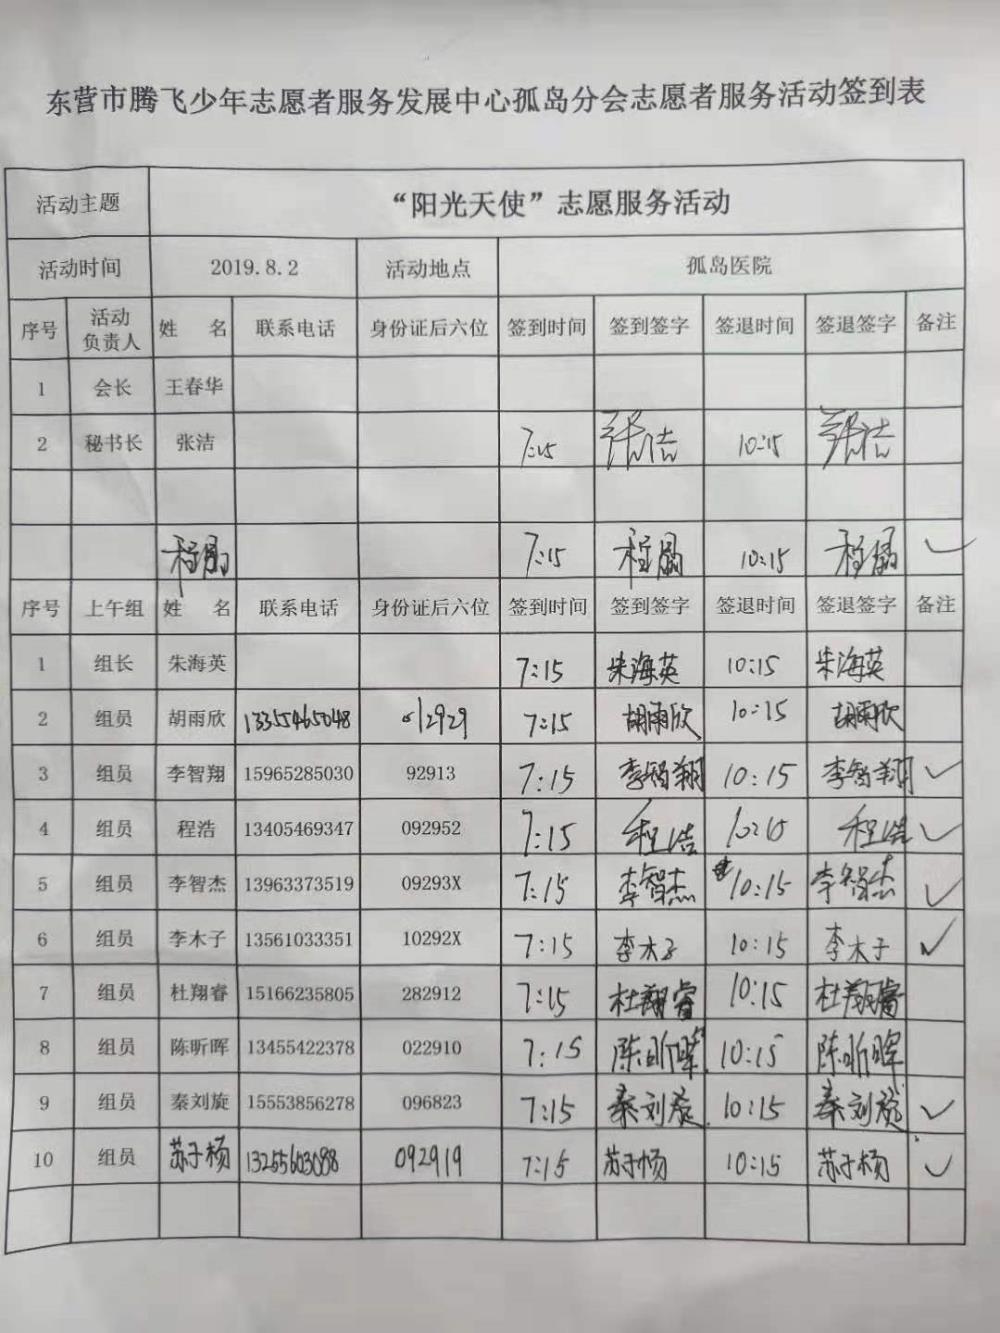 东营市腾飞少年志愿者服务发展中心孤岛分会志愿者服务活动签到表
活动主题 “阳光天使”志愿服务活动
活动时间 2019.8.2 活动地点 孤岛医院
序号 活动负责人 姓 名 联系电话 身份证后六位 签到时间 签到签字 签退时间 签退签字 备注
1 会长 王春华
2 秘书长 张洁 7:15 张洁 10:15 张洁
7:15 10:15 ✓
序号 上午组 姓 名 联系电话 身份证后六位 签到时间 签到签字 签退时间 签退签字 备注
1 组长 朱海英 7:15 朱海英 10:15 朱海英
2 组员 胡雨欣 13355465048 012929 7:15 胡雨欣 10:15 胡雨欣
3 组员 李智翔 15965285030 92913 7:15 李智翔 10:15 李智翔 ✓
4 组员 程浩 13405469347 092952 7:15 程浩 10:15 程浩 ✓
5 组员 李智杰 13963373519 09293X 7:15 李智杰 10:15 李智杰 ✓
6 组员 李木子 13561033351 10292X 7:15 李木子 10:15 李木子 ✓
7 组员 杜翔睿 15166235805 282912 7:15 杜翔睿 10:15 杜翔睿
8 组员 陈昕晖 13455422378 022910 7:15 陈昕晖 10:15 陈昕晖
9 组员 秦刘旋 15553856278 096823 7:15 秦刘旋 10:15 秦刘旋 ✓
10 组员 苏子杨 13255603088 092919 7:15 苏子杨 10:15 苏子杨 ✓